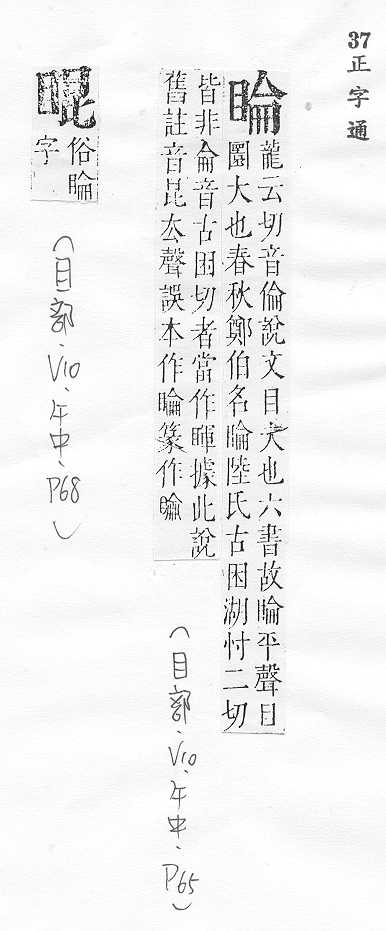 37正字通
睔
龍云切音倫說文目大也六書故睔平聲目
圜大也春秋鄭伯名睔陸氏古困湖忖二切
皆非侖音古困切者當作睴據此說
舊註音昆去聲誤本作睔篆作睔
(目部、V10、午中、P65)
睍
俗睔
字
(目部、V10、午中、P68)